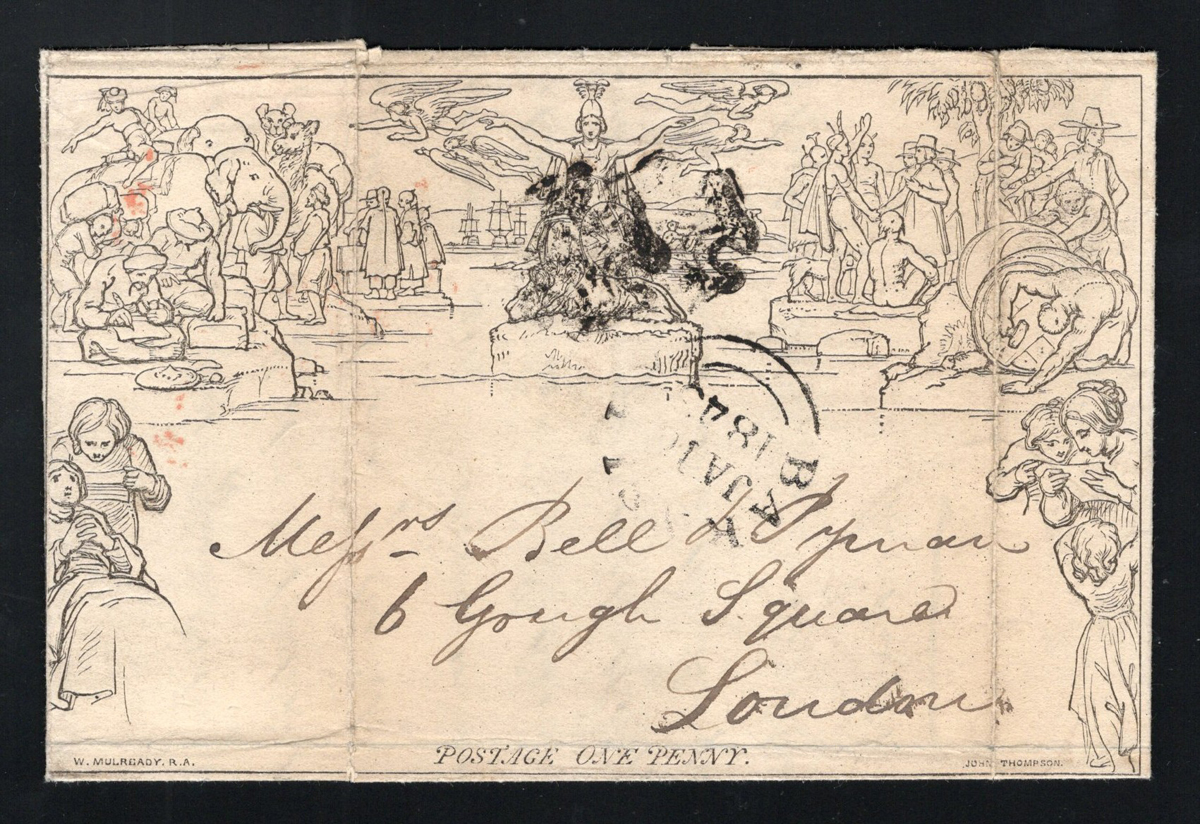 184
JA
BA
Messrs Bell &
6 Gough Square
London
POSTAGE ONE PENNY.
W. MULREADY. R.A.
JOHN THOMPSON.